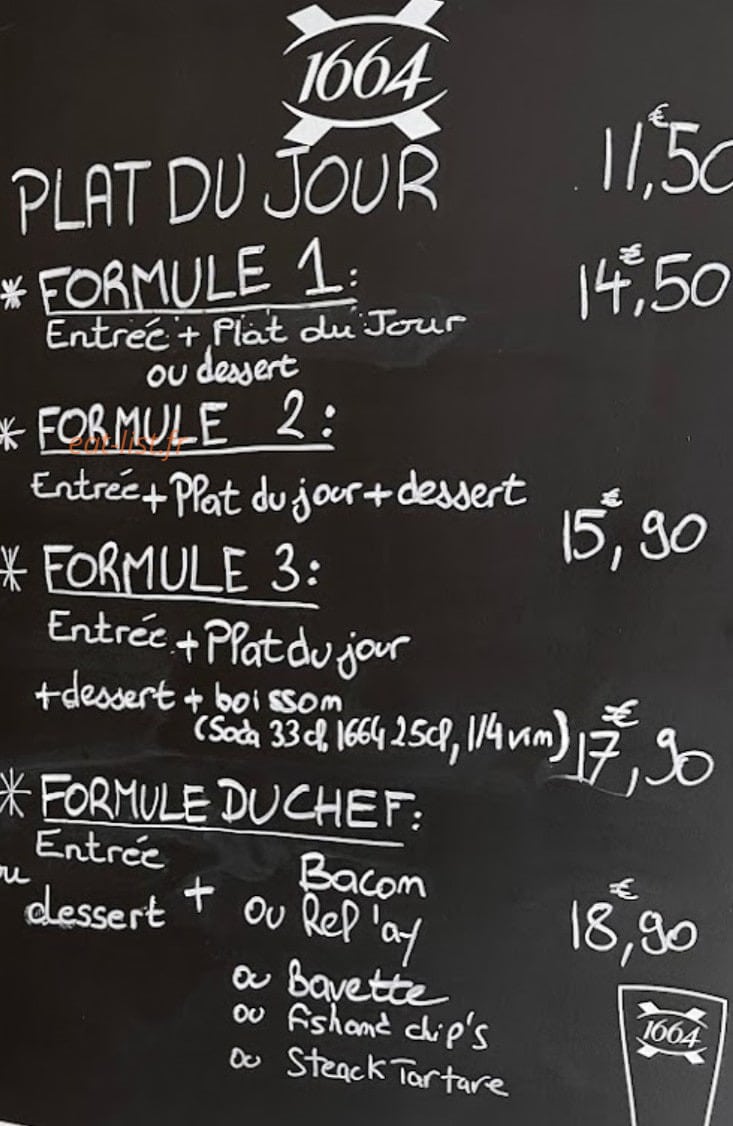 1664
PLAT DU JOUR 11,50€
* FORMULE 1: 14,50€
Entrée + Plat du Jour
ou dessert
* FORMULE 2:
eat-list.fr
Entrée + Plat du jour + dessert 15,90€
* FORMULE 3:
Entrée + Plat du jour
+ dessert + boisson
(Soda 33cl, 1664 25cl, 1/4 vin) 17,90€
* FORMULE DU CHEF:
Entrée
ou
dessert + Bacon
ou Rep'ay 18,90€
ou Bavette
ou fishand chip's
ou Steack Tartare
1664